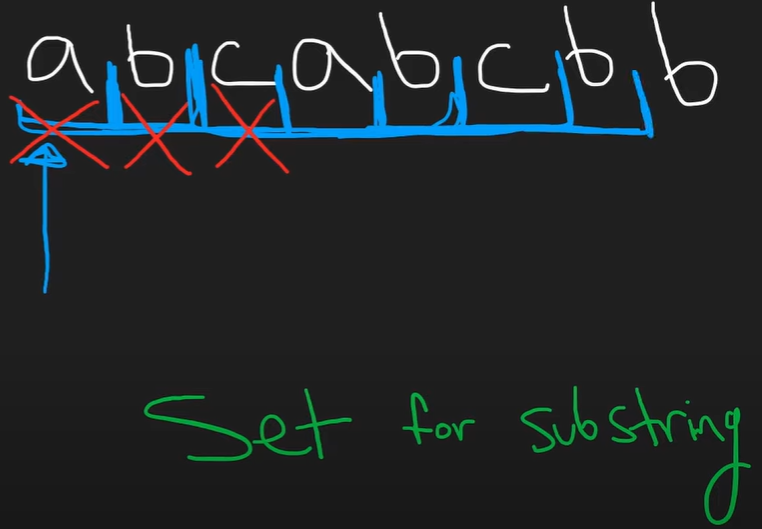 abcabcbb
Set for substring